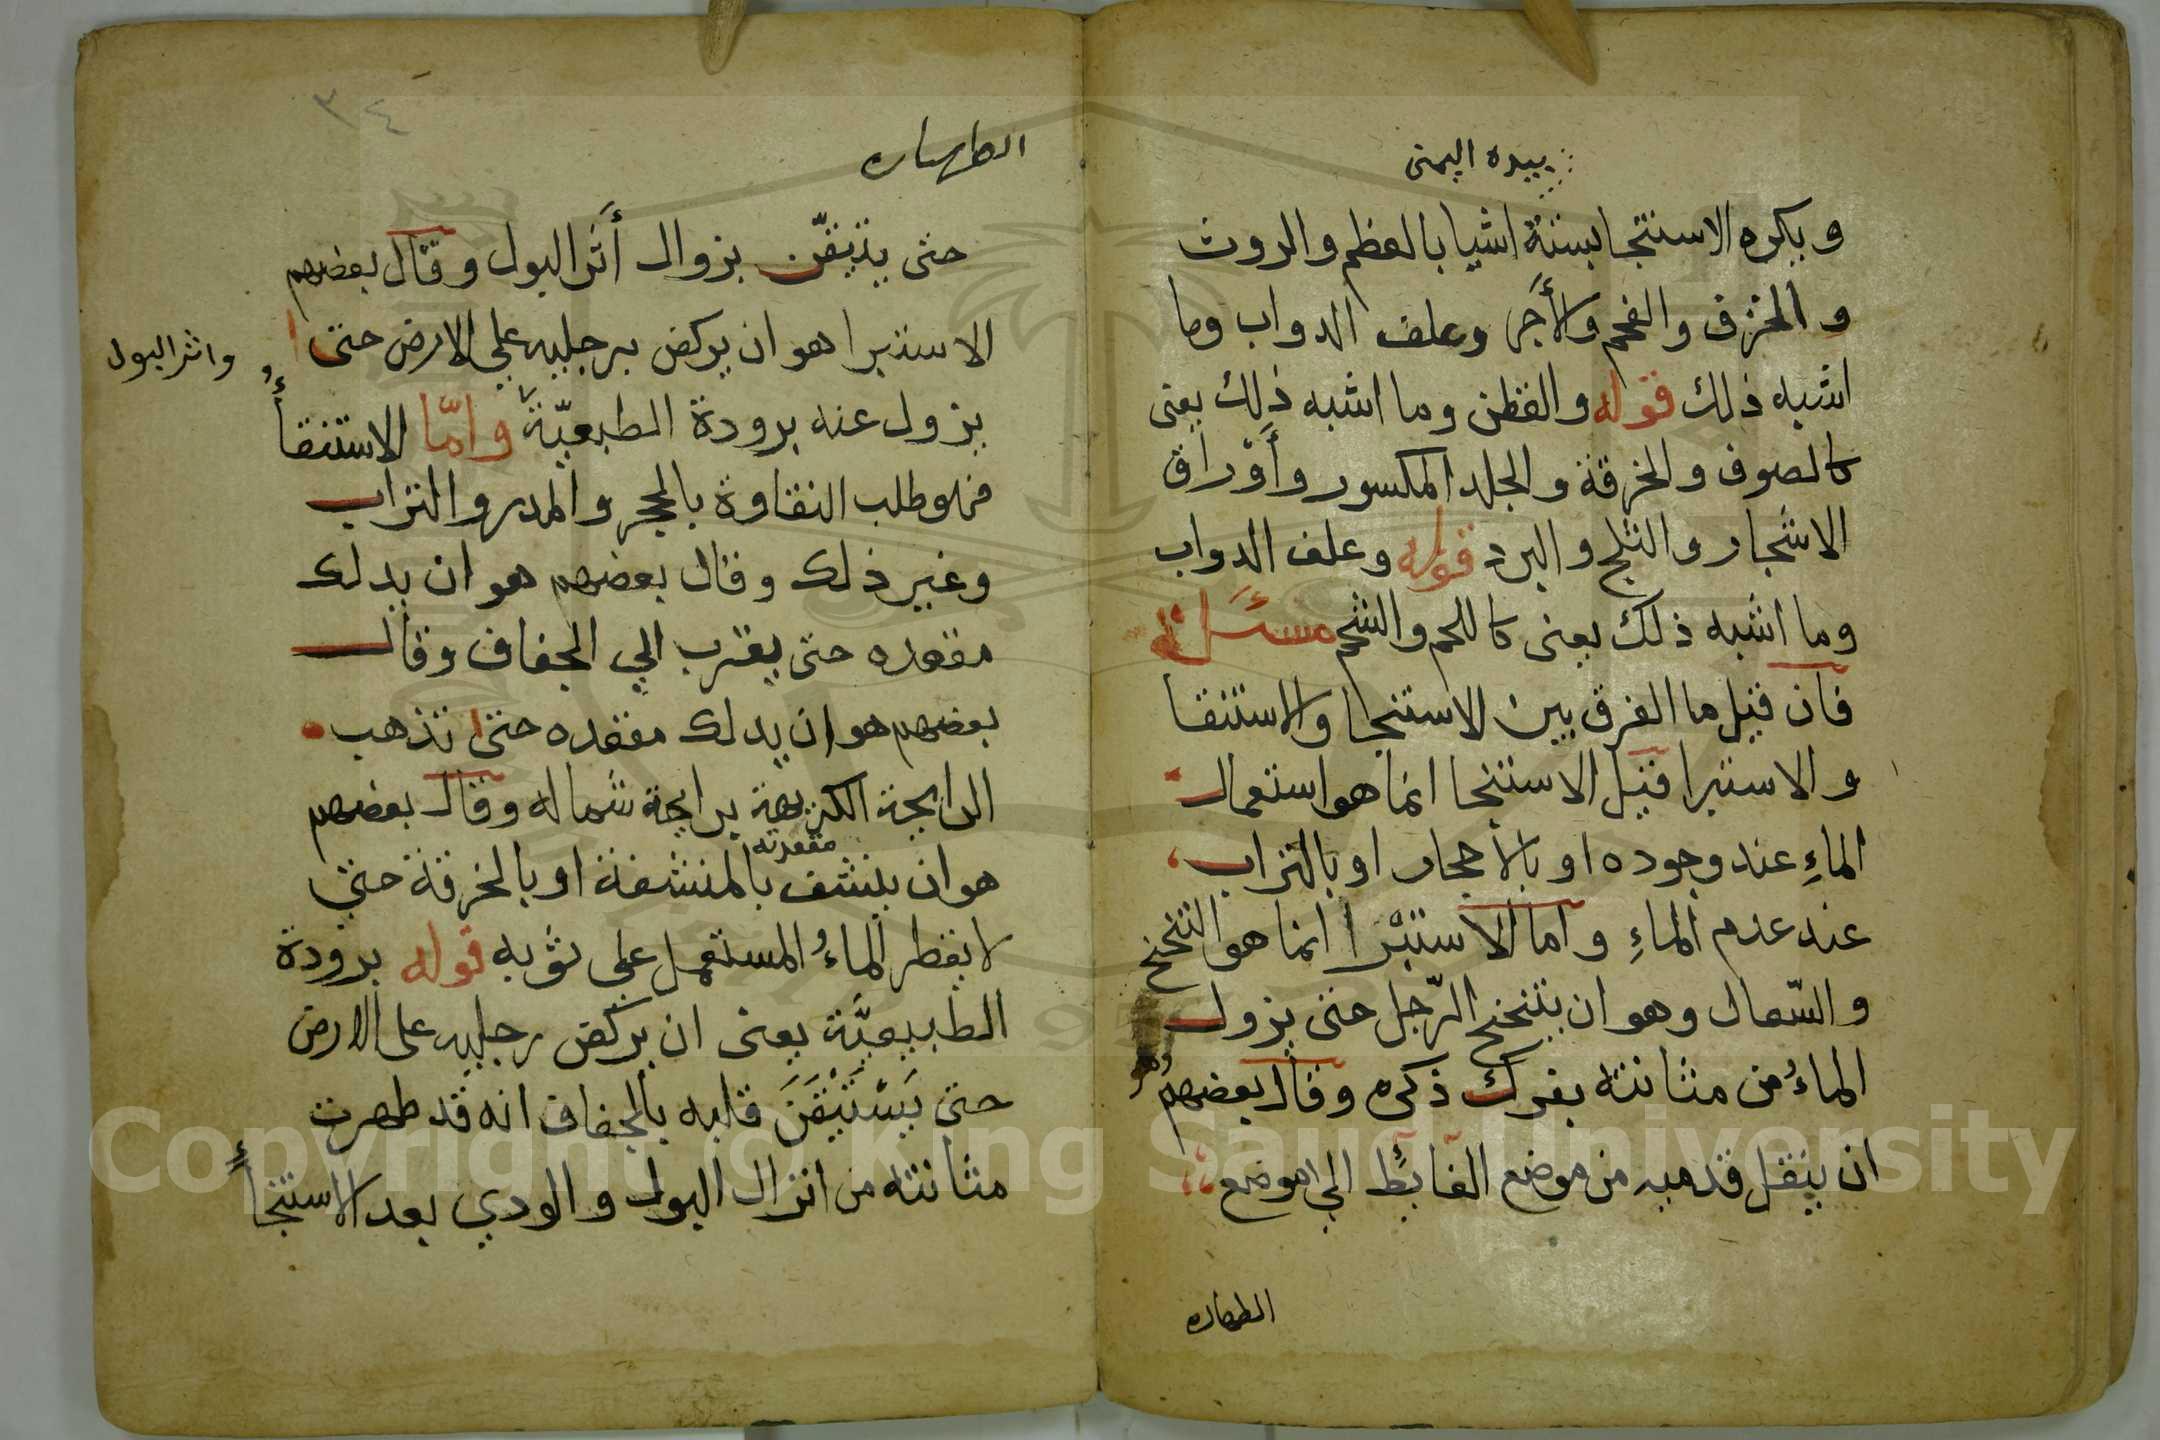 بيده اليمنى
ويكره الاستنجا بستة اشيا بالعظم والروث
والخزف والفحم والأَجر وعلف الدواب وما
اشبه ذلك قوله والقطن وما اشبه ذلك يعنى
كالصوف والخرقة والجلد المكسور وأَوْراق
الاشجار والثلج والبرد قوله وعلف الدواب
وما اشبه ذلك يعنى كاللحم والشحم مسئلة
فان قيل ما الفرق بين الاستنجا والاستنقا
والاستبرا قيل الاستنجا انما هو استعمال
الماءِ عند وجوده او بالأحجار او بالتراب
عند عدم الماءِ واما الاستبْرا انما هو التنحنح
والسّعال وهو ان يتنحنح الرّجل حتى يزول
الماءُ من مثانته بفرك ذكره وقال بعضهم هو
ان ينقل قدميه من موضع الغائط الى موضع
الطهاره
٣٤
الطهاره
حتى يتيقّن بزوال أَثر البول وقال بعضهم
الاستبرا هو ان يركض برجليه علي الارض حتى
واثر البول
يزول عنه برودة الطبعيّة وامّا الاستنقأُ
فهو طلب النقاوة بالحجر والمدر والتراب
وغير ذلك وقال بعضهم هو ان يدلك
مقعده حتى يقرب الي الجفاف وقال
بعضهم هو ان يدلك مقعده حتى تذهب
الرايحة الكريهة برايحة شماله وقال بعضهم
مقعدته
هو ان ينشف بالمنشفة او بالخرقة حتى
لا يقطر الماءُ المستعمل على ثوبه قوله برودة
الطبيعيَّة يعنى ان يركض رجليه على الارض
حتى يَسْتَيْقَنَ قلبه بالجفاف انه قد طهرت
مثانته من انزال البول والودي بعد الاستنجأِ
Copyright © King Saud University